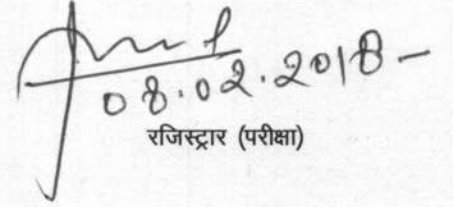 08.02.2018
रजिस्ट्रार (परीक्षा)